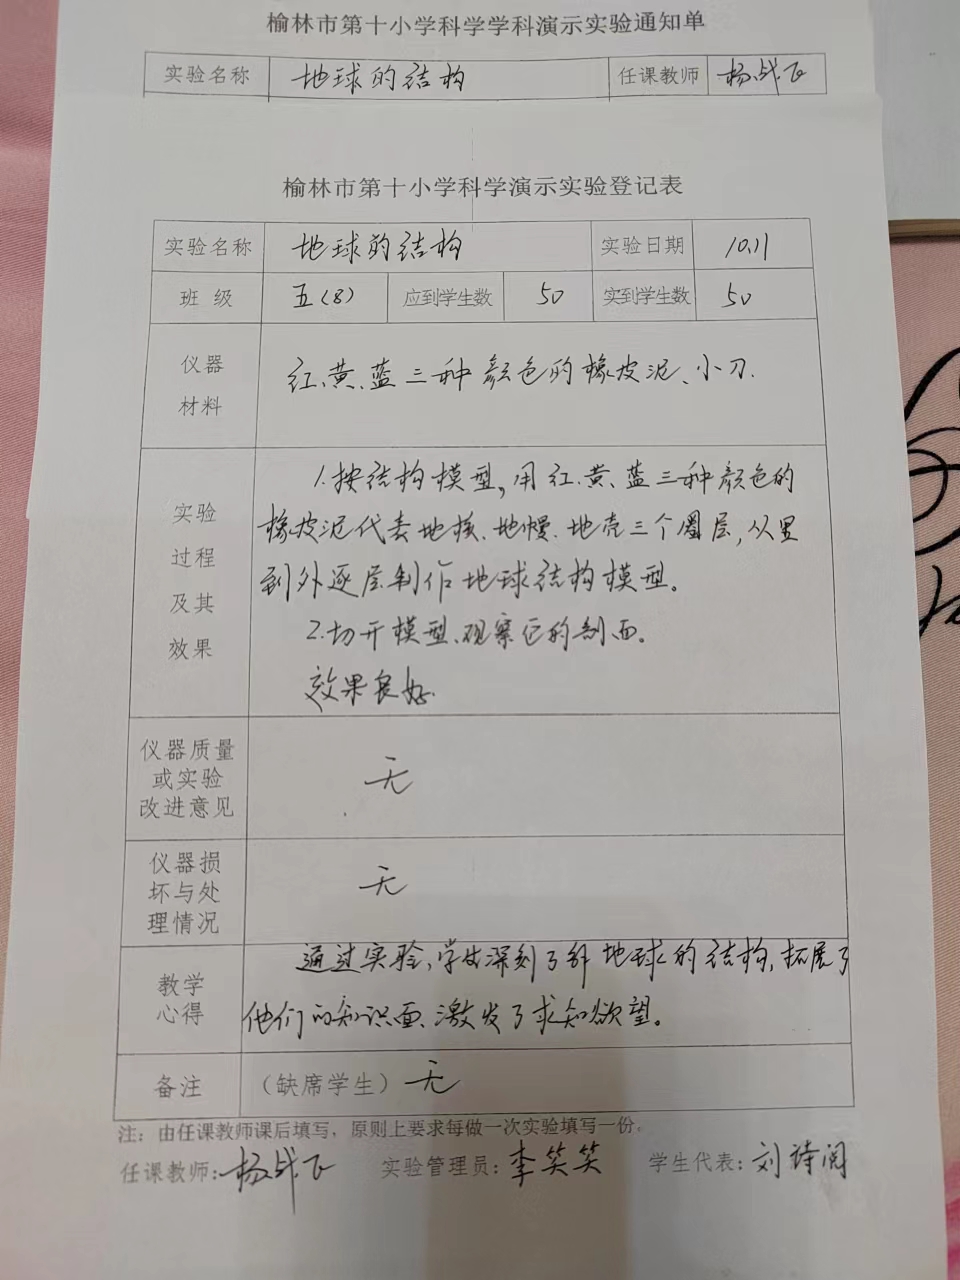 榆林市第十小学科学学科演示实验通知单
实验名称 地球的结构 任课教师 杨战飞
榆林市第十小学科学演示实验登记表
实验名称 地球的结构 实验日期 10.11
班 级 五(8) 应到学生数 50 实到学生数 50
仪器
材料
红、黄、蓝三种颜色的橡皮泥、小刀.
实验
过程
及其
效果
1.按结构模型,用红、黄、蓝三种颜色的
橡皮泥代表地核、地幔、地壳三个圈层,从里
到外逐层制作地球结构模型。
2.切开模型、观察它的剖面。
效果良好.
仪器质量
或实验
改进意见
无
仪器损
坏与处
理情况
无
教学
心得
通过实验,学生深刻了解地球的结构,拓展了
他们的知识面、激发了求知欲望。
备注 (缺席学生) 无
注:由任课教师课后填写,原则上要求每做一次实验填写一份。
任课教师:杨战飞 实验管理员:李笑笑 学生代表:刘诗阅